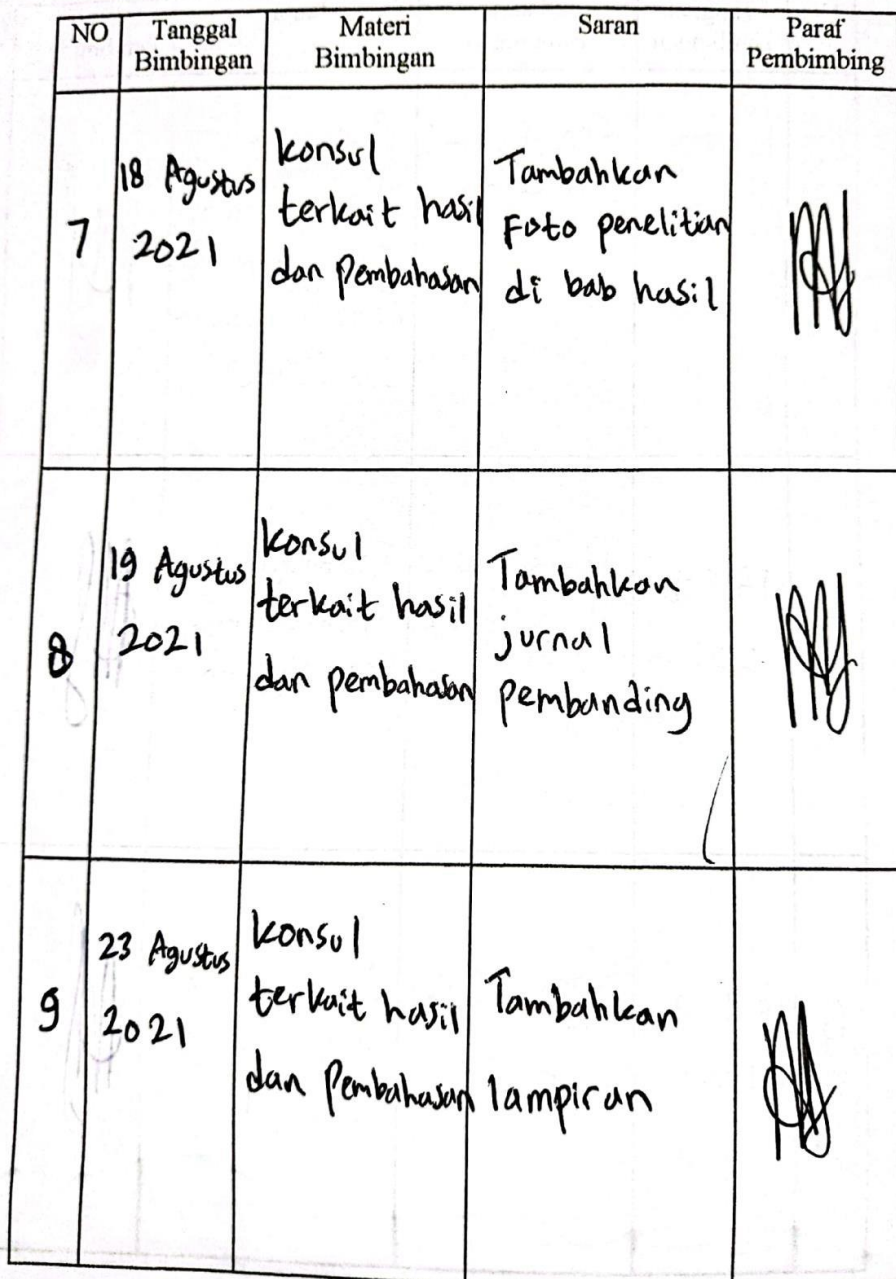 NO
Tanggal
Bimbingan
Materi
Bimbingan
Saran
Paraf
Pembimbing
7
18 Agustus
2021
konsul
terkait hasil
dan Pembahasan
Tambahkan
Foto penelitian
di bab hasil
8
19 Agustus
2021
konsul
terkait hasil
dan pembahasan
Tambahkan
jurnal
pembanding
9
23 Agustus
2021
konsul
terkait hasil
dan Pembahasan
Tambahkan
lampiran